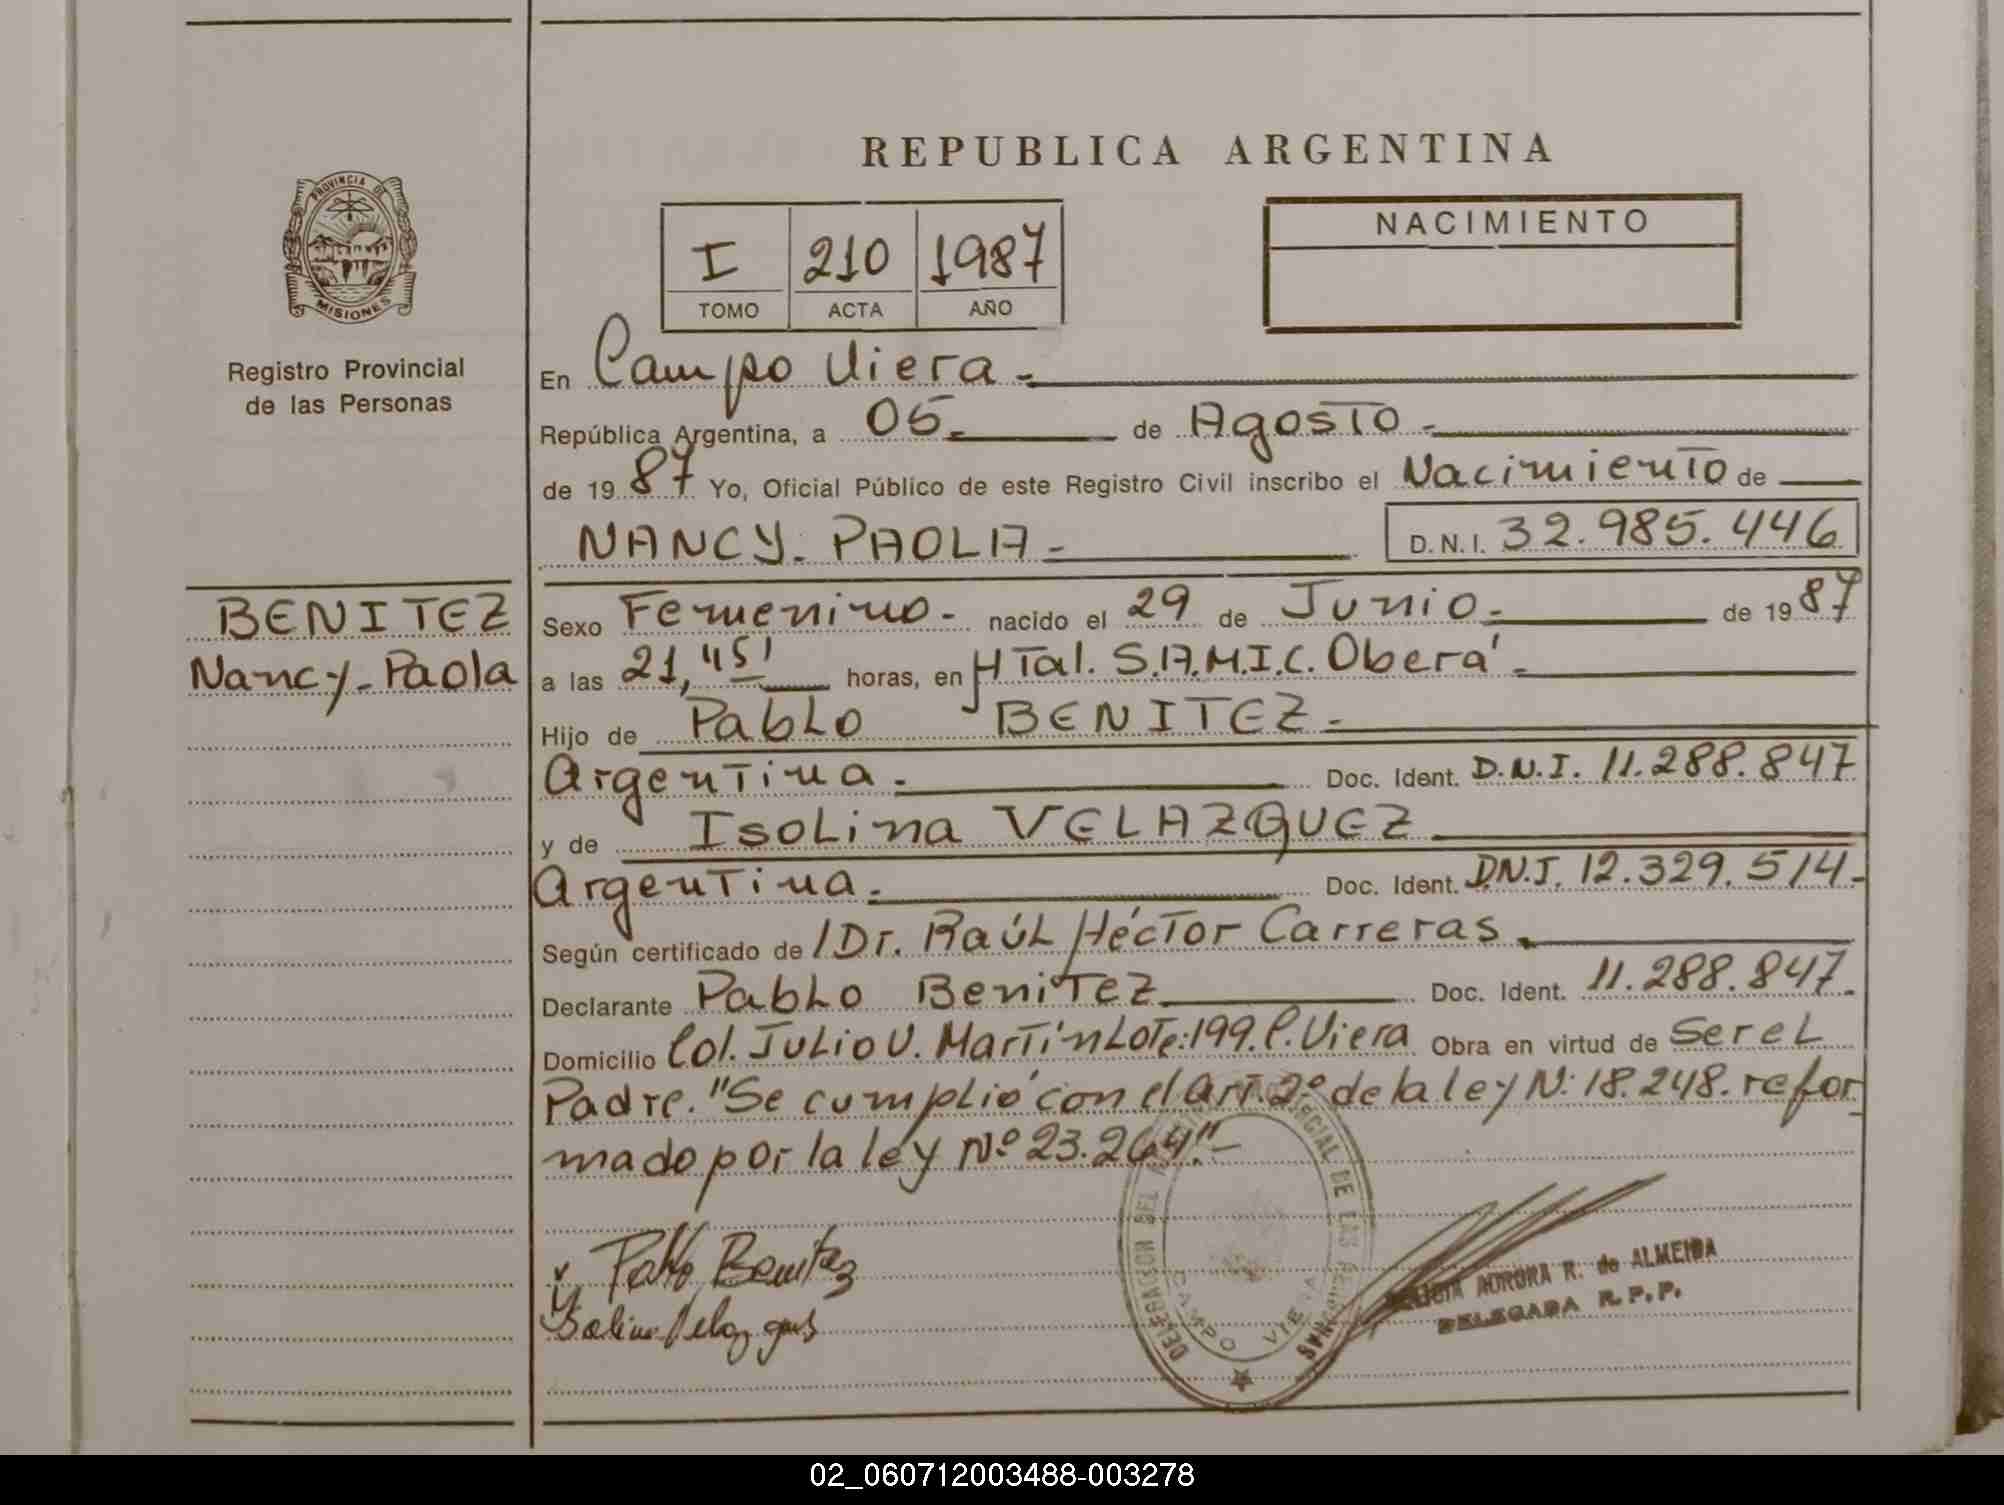 REPUBLICA ARGENTINA
PROVINCIA DE
MISIONES
Registro Provincial
de las Personas
I 210 1987
TOMO ACTA AÑO
NACIMIENTO
En Campo Viera -
República Argentina, a 05 - de Agosto -
de 1987 Yo, Oficial Público de este Registro Civil inscribo el Nacimiento de
NANCY - PAOLA - D.N.I. 32.985.446
BENITEZ
Nancy - Paola
Sexo Femenino - nacido el 29 de Junio - de 1987
a las 21,"15' horas, en HTal. S.A.M.I.C. Oberá -
Hijo de Pablo BENITEZ -
Argentina - Doc. Ident. D.N.I. 11.288.847
y de Isolina VELAZQUEZ
Argentina - Doc. Ident. D.N.I. 12.329.514 -
Según certificado de Dr. Raúl Héctor Carreras
Declarante Pablo Benitez Doc. Ident. 11.288.847 -
Domicilio Col. Julio U. Martín Lote: 199. C. Viera Obra en virtud de ser el
Padre. "Se cumplió con el art. 2º de la ley Nº 18.248. refor
mado por la ley Nº 23.264." -
Pablo Benitez
DELEGACION DEL REGISTRO PROVINCIAL DE LAS PERSONAS
CAMPO VIERA
AURORA R. de ALMEIDA
DELEGADA R.P.P.
02_060712003488-003278